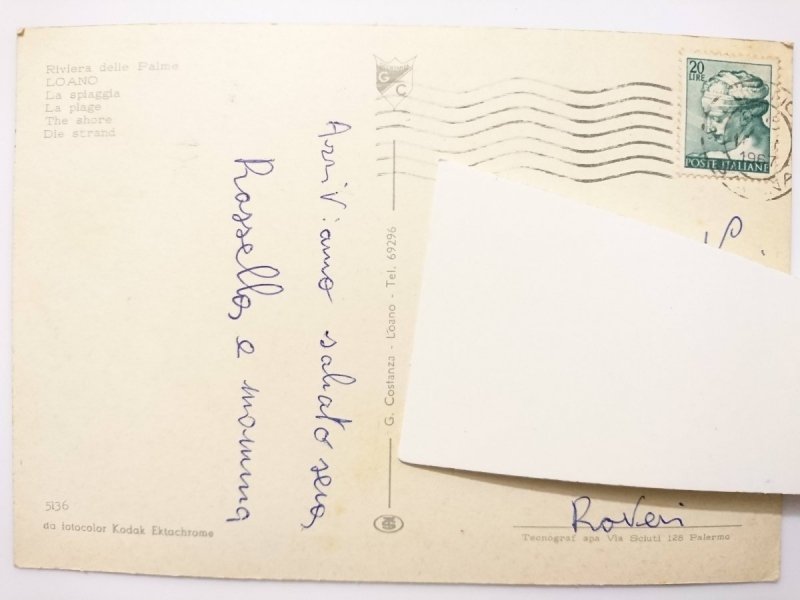 Riviera delle Palme
LOANO
La spiaggia
La plage
The shore
Die strand
G C
20
LIRE
1967
POSTE ITALIANE
Arriviamo sabato sera
Rossella e mamma
G. Costanza - Loano - Tel. 69296
Roveri
5136
da fotocolor Kodak Ektachrome
Tecnograf spa Via Sciuti 128 Palermo